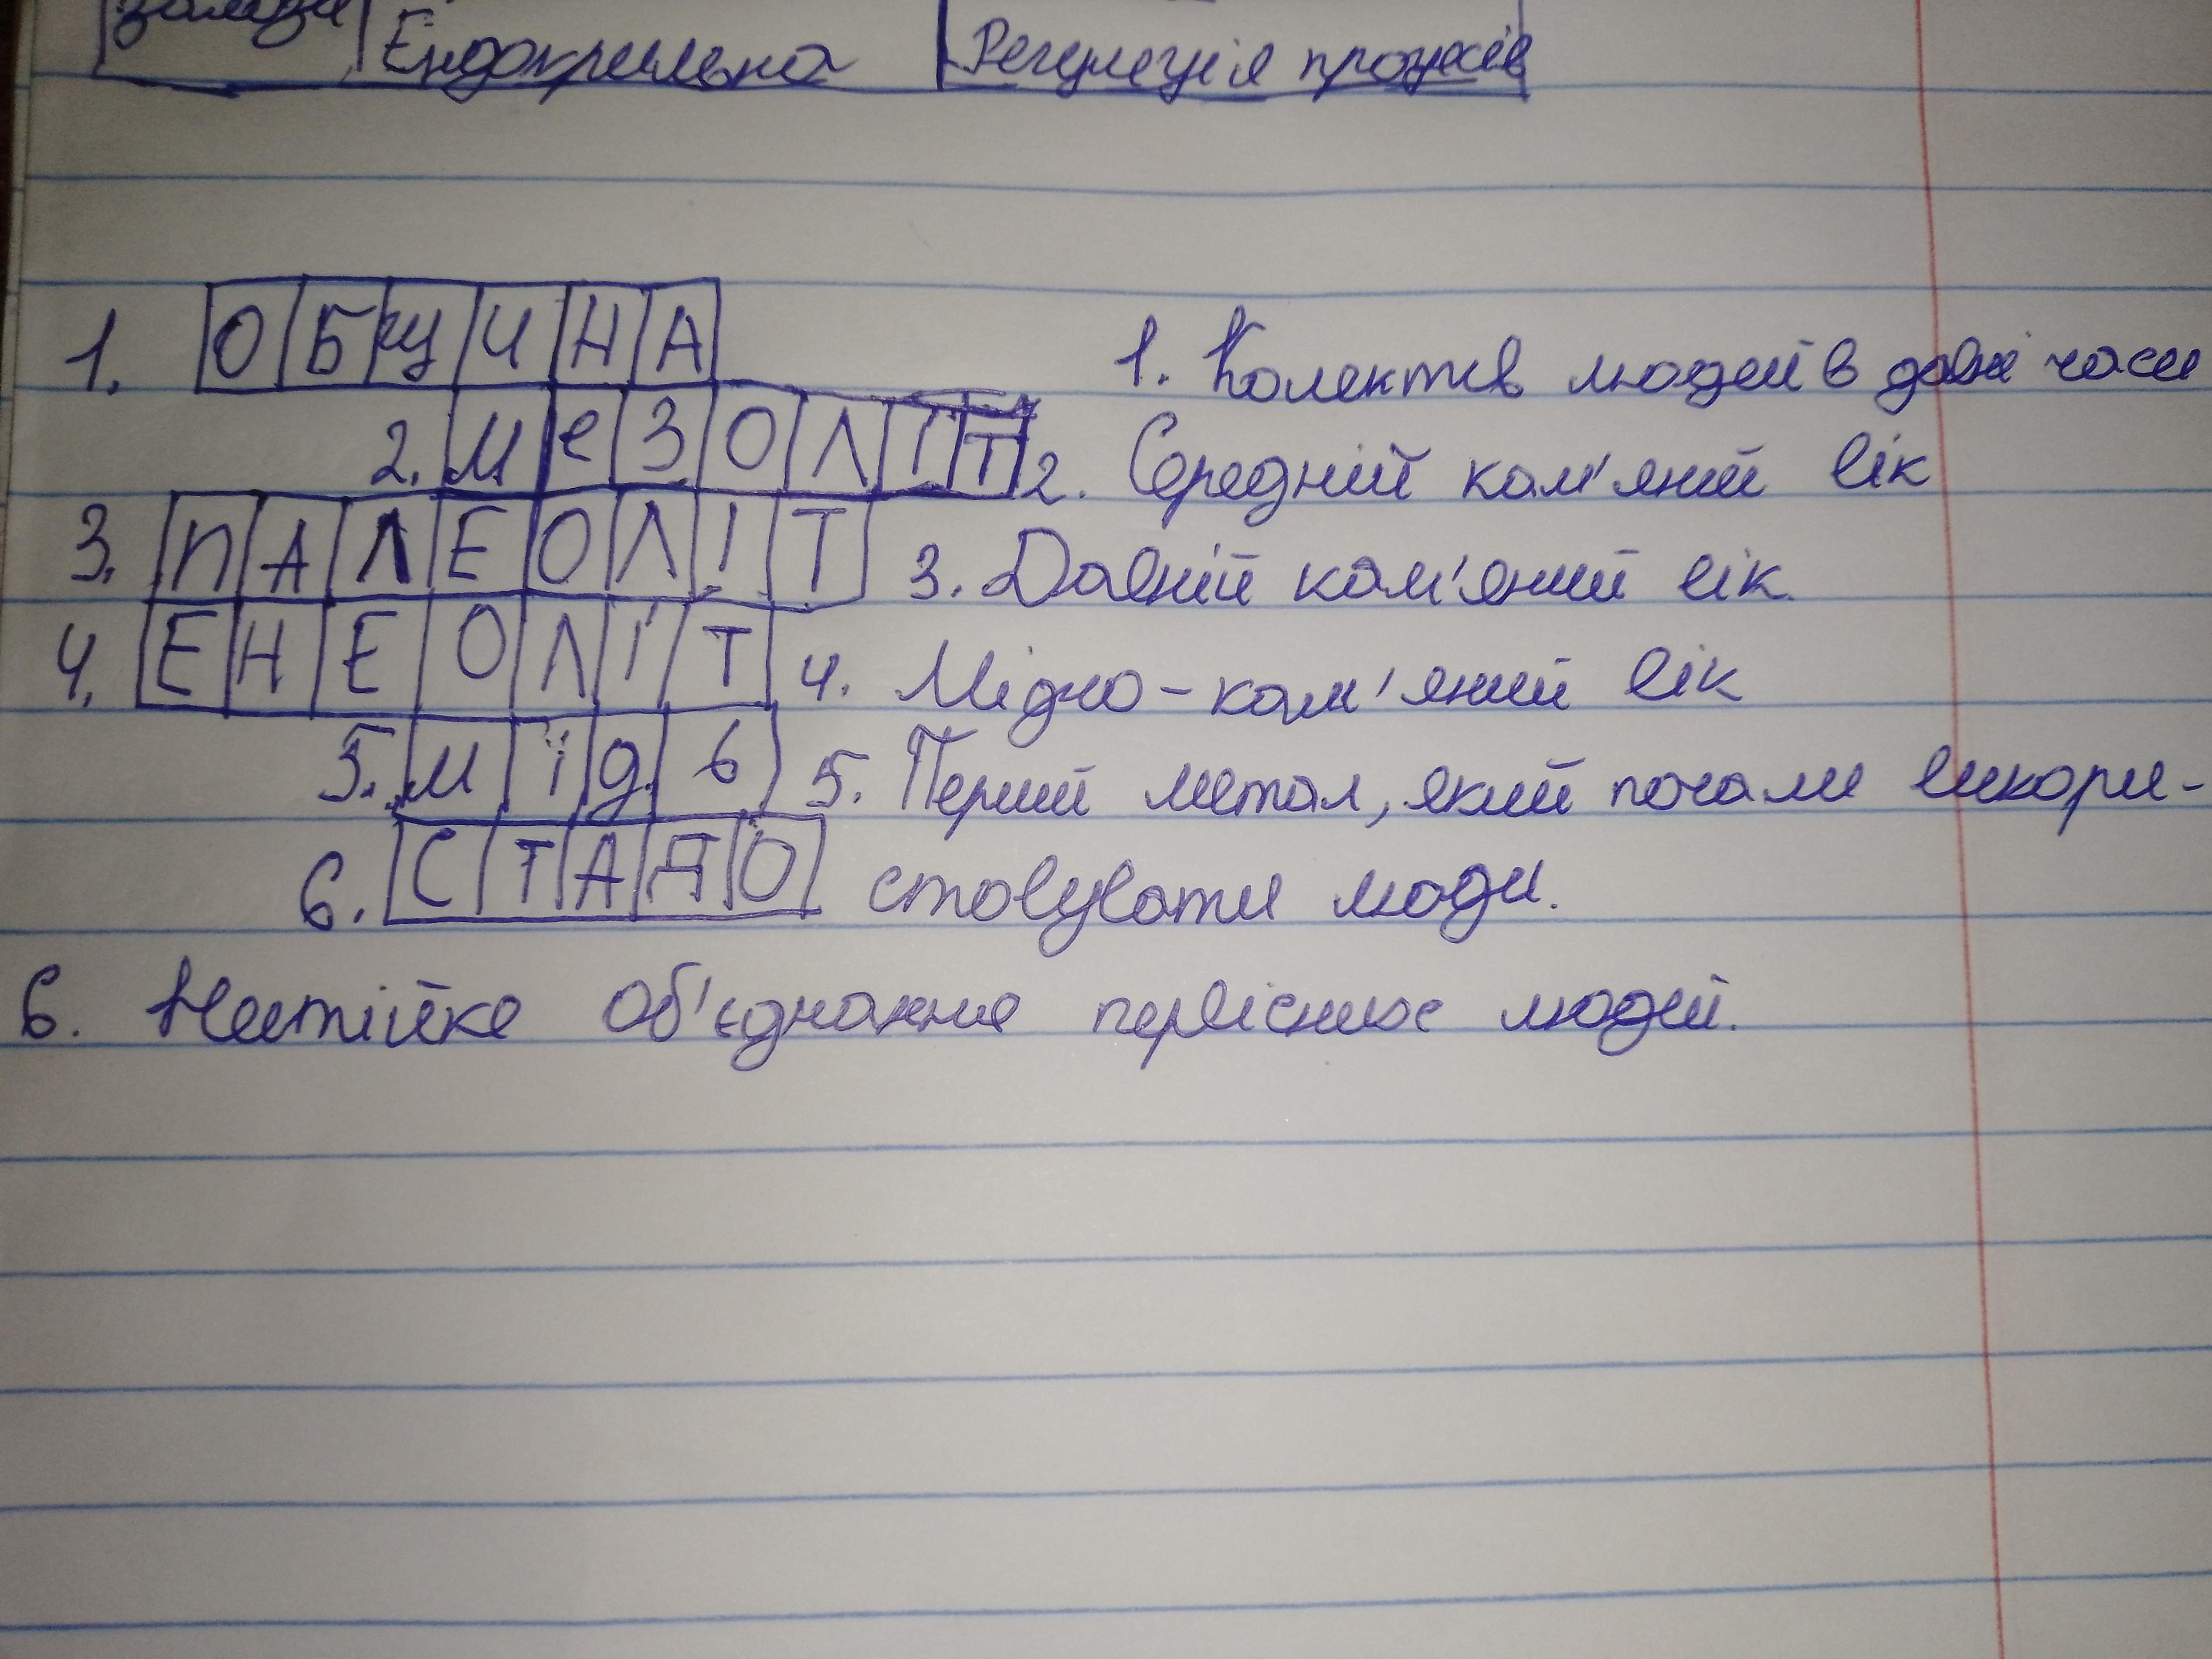 залоза Ендокринна Регуляція процесів
1. ОБЩИНА 1. Колектив людей в давні часи
2. МеЗОЛІТ 2. Середній кам'яний вік
3. ПАЛЕОЛІТ 3. Давній кам'яний вік.
4. ЕНЕОЛІТ 4. Мідно-кам'яний вік
5. мідь 5. Перший метал, який почали викори-
6. СТАДО стовувати люди.
6. Нестійке об'єднання первісних людей.